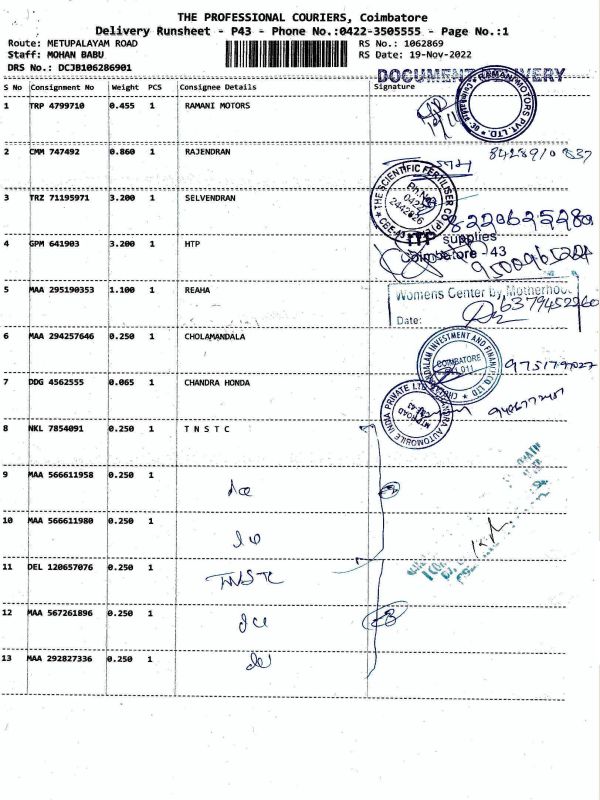 THE PROFESSIONAL COURIERS, Coimbatore
Delivery Runsheet - P43 - Phone No.:0422-3505555 - Page No.:1
Route: METUPALAYAM ROAD RS No.: 1062869
Staff: MOHAN BABU RS Date: 19-Nov-2022
DRS No.: DCJB106286901
DOCUMENT DELIVERY
S No Consignment No Weight PCS Consignee Details Signature
1 TRP 4799710 0.455 1 RAMANI MOTORS
RAMANI MOTORS PVT. LTD.
2 CMM 747492 0.860 1 RAJENDRAN
THE SCIENTIFIC FERTILISER CO (P)
Ph.No
0422
2442026
CBE-43
3 TRZ 71195971 3.200 1 SELVENDRAN
8220625280
4 GPM 641903 3.200 1 HTP
HTP supplies
Coimbatore - 43
5 MAA 295190353 1.100 1 REAHA
Womens Center by Motherhood
6379452260
Date:
6 MAA 294257646 0.250 1 CHOLAMANDALA
CHOLAMANDALAM INVESTMENT AND FINANCE CO. LTD
COIMBATORE
7 DDG 4562555 0.065 1 CHANDRA HONDA
CHANDRA AUTOMOBILE INDIA PRIVATE LTD
MTP ROAD
CBE-43
8 NKL 7854091 0.250 1 T N S T C
9 MAA 566611958 0.250 1
10 MAA 566611980 0.250 1
11 DEL 120657076 0.250 1 TNSTC
12 MAA 567261896 0.250 1
13 MAA 292827336 0.250 1